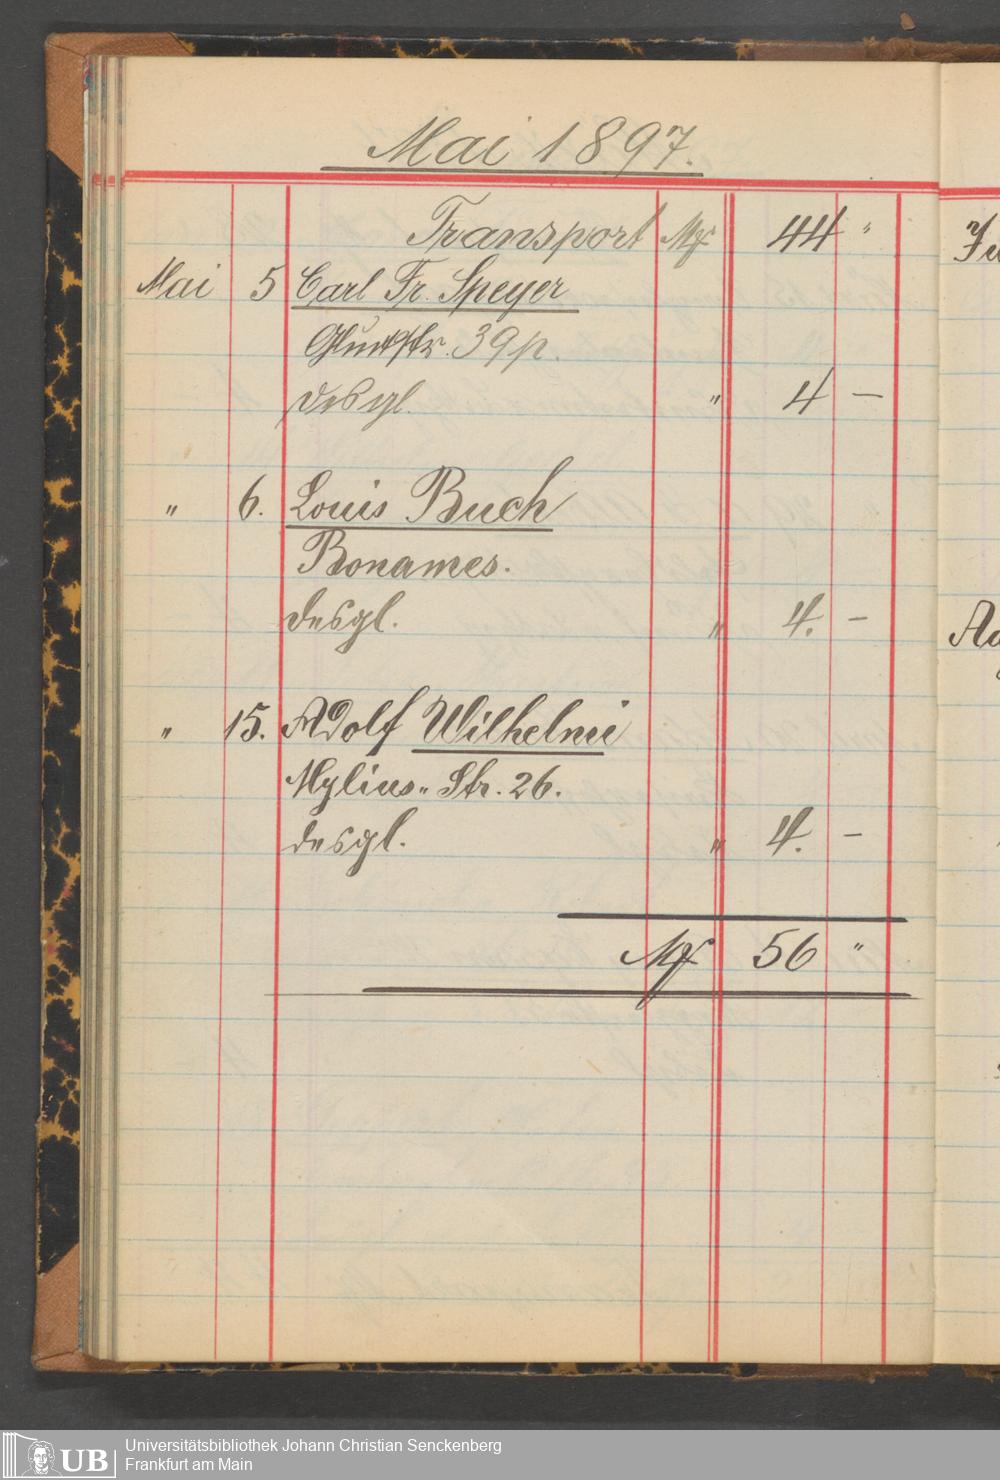 Mai 1897.
Transport Mk 44 "
Mai 5 Carl Fr. Speyer
39 p.
desgl. " 4 —
" 6. Louis Buch
Bonames.
desgl. " 4. —
" 15. Adolf Wilhelmi
Mylius- Str. 26.
desgl. " 4. —
Mk 56 "
UB Universitätsbibliothek Johann Christian Senckenberg
Frankfurt am Main